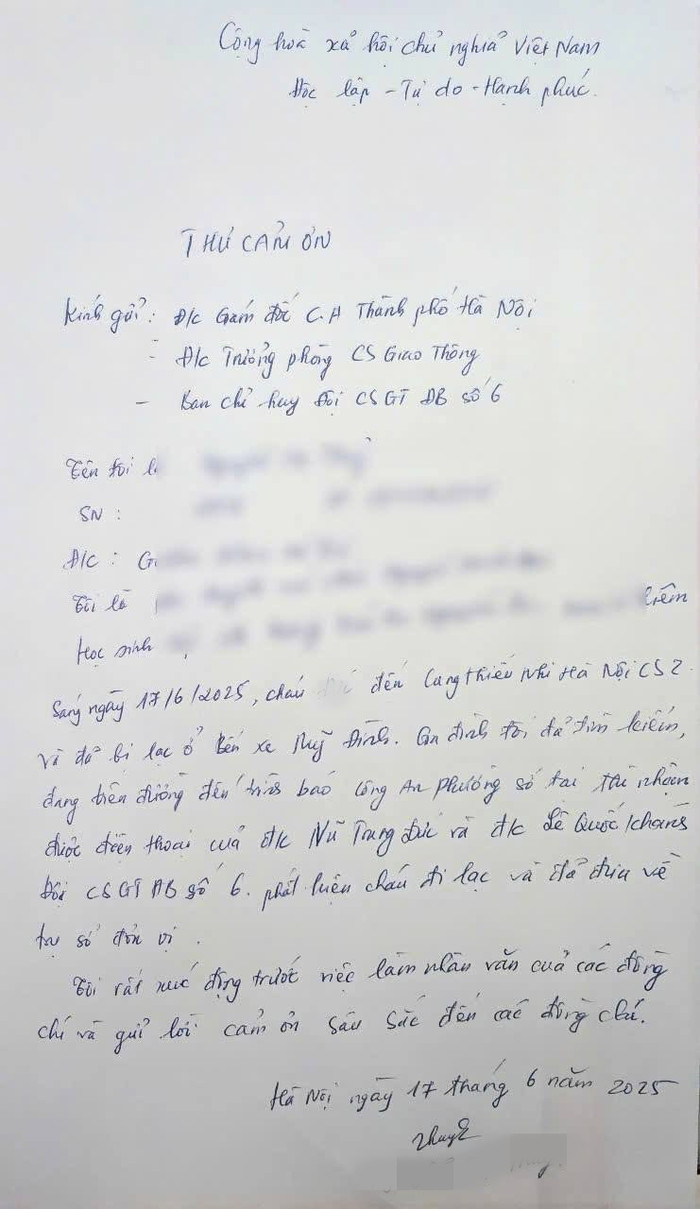 Cộng hoà xả hội chủ nghiả Việt Nam
Độc lập - Tự do - Hạnh phúc.
THƯ CẢM ƠN
Kính gửi : Đ/c Gám đốc C.A Thành phố Hà Nội
- Đ/c Trưởng phòng CS Giao Thông
- Ban chỉ huy Đội CSGT ĐB số 6
Tên tôi là
SN :
Đ/C : G
Tôi là
Học sinh
Sáng ngày 17/6/2025, cháu đến Cung thiếu Nhi Hà Nội CS2.
và đả bị lạc ở Bến xe Mỹ Đình. Gia đình tôi đả tìm kiếm,
đang trên đường đến trình báo Công An phường sở tại thì nhận
được điện thoại cuả đ/c Trung Đức và đ/c Lê Quốc Khánh
Đội CSGT ĐB số 6. phát hiện cháu đi lạc và đả đưa về
trụ sở đơn vị .
Tôi rất xúc động trước việc làm nhân văn cuả các đồng
chí và gửi lời cảm ơn sâu sắc đến các đồng chí.
Hà Nội ngày 17 tháng 6 năm 2025